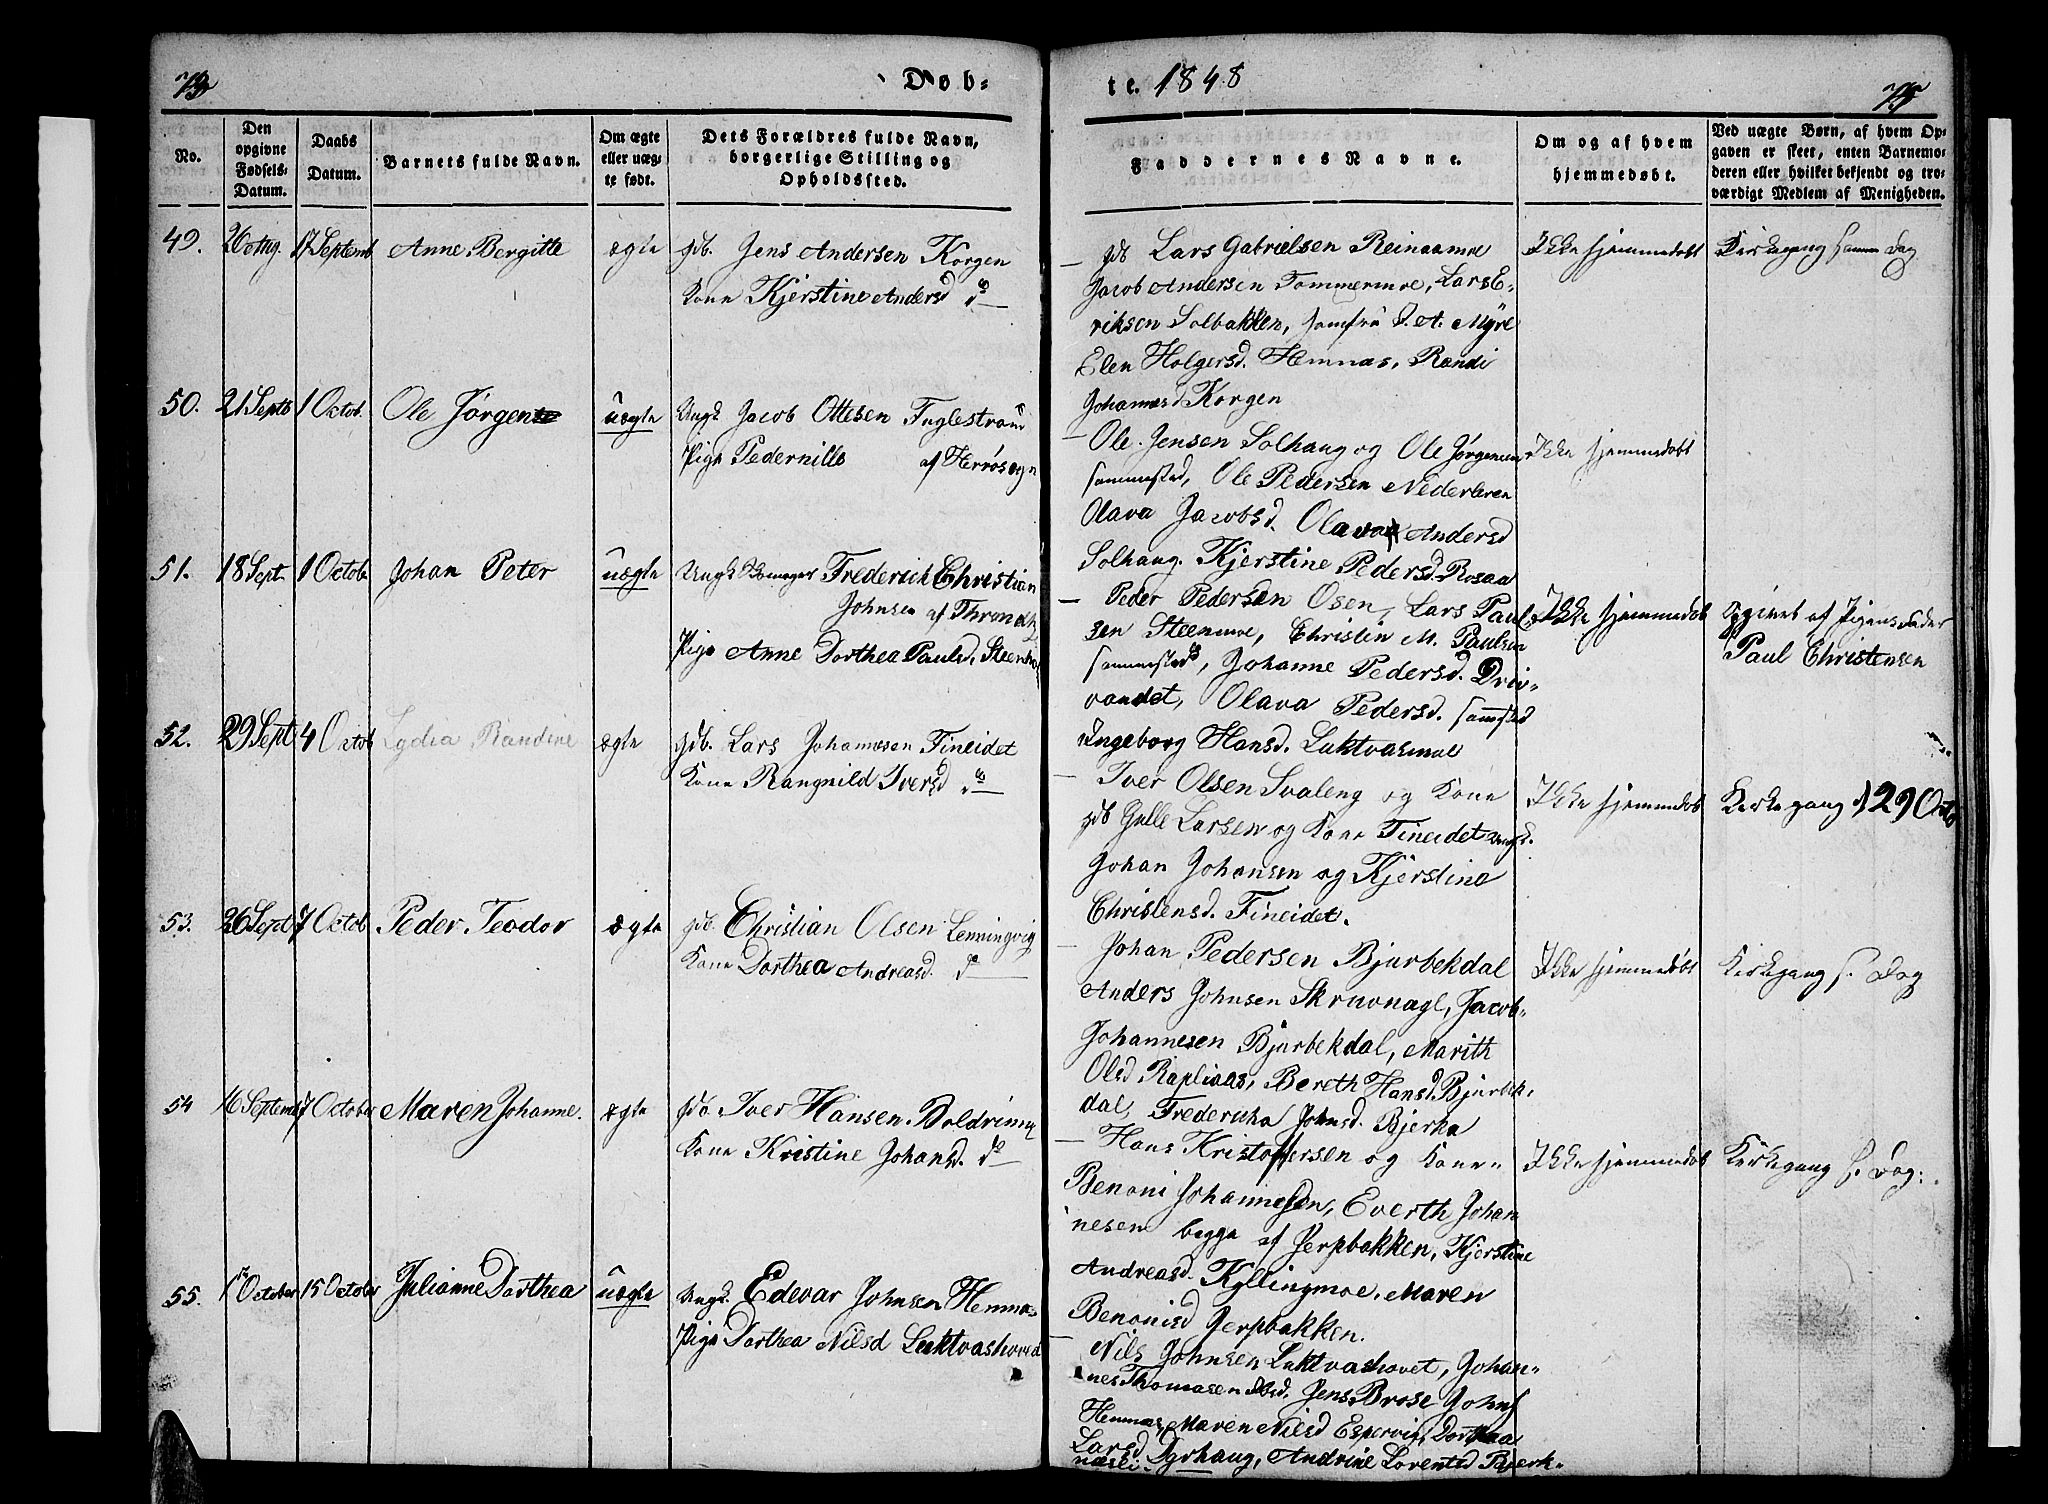 Døb-
te. 1848
No.
Den
opgivne
Fødsels-
Datum.
Daabs
Datum.
Barnets fulde Navn.
Om ægte
eller uæg-
te født.
Dets Forældres fulde Navn,
borgerlige Stilling og
Opholdssted.
Faddernes Navne.
Om og af hvem
hjemmedøbt.
Ved uægte Børn, af hvem Op-
gaven er skeet, enten Barnemo-
deren eller hvilket bekjendt og tro-
værdigt Medlem af Menigheden.
49.
26 Aug.
17 Septemb
Anne Bergitte
ægte
gdb. Jens Andersen Korgen
Kone Kjerstine Andersd do
gdb Lars Gabrielsen Reinaamoe
Jacob Andersen Tommermoe, Lars E-
riksen Solbakken, Jomfru J. A. Myre
Elen Holgersd. Hemnæs, Randi
Johannesd Korgen
Ikke hjemmedøbt
Kirkegang samme Dag
50.
21 Septb
1 Octob.
Ole Jørgen
uægte
Ungk Jacob Ottesen Fuglestrøm
Pige Pedernille af Herrøsogn
Ole Jensen Solhaug og Ole Jørgensen
sammested, Ole Pedersen Nederleren
Olava Jacobsd. Olava Andersd
Solhaug. Kjerstine Pedersd. Rosaa
Ikke hjemmedøbt
51.
18 Sept.
1 Octob.
Johan Peter
uægte
Ungk Frederich Christian
Johnsen af Throndhj
Pige Anne Dorthea Paulsd. Steenmo
Peder Pedersen Osen, Lars Paul-
sen Steenmoe, Christin M. Paulsen
sammesteds, Johanne Pedersd. Drev-
vandet, Olava Pedersd. sammsted
Ingeborg Hansd. Luktvasmoe
Ikke hjemmedøbt
Opgivet af Pigens Fader
Paul Christensen
52.
29 Sept
4 Octob
Lydia Randine
ægte
gdb. Lars Johannesen Fineidet
Kone Rangnild Iversd do
Iver Olsen Svaleng og Kone
gdb Gulle Larsen og Kone Fineidet ungk.
Johan Johansen og Kjerstine
Christensd. Fineidet.
Ikke hjemmedøbt
Kirkegang d 29 Octb
53.
26 Sept
7 Octob
Peder Teodor
ægte
gdb. Christian Olsen Lenningvig
Kone Dorthea Andreasd. do
Johan Pedersen Bjurbekdal
Anders Johnsen Skruvnagl, Jacob-
Johannesen Bjurbekdal, Marith
Olsd Rapliaas, Bereth Hansd. Bjurbek-
dal, Fredericha Johnsd. Bjerka
Ikke hjemmedøbt
Kirkegang s. Dag
54
16 Septemb
7 October
Maren Johanne.
ægte
gdb. Iver Hansen
Kone Kristine Johansd. do
Hans Kristoffersen og Kone
Benoni Johannesen, Everth Johan
nesen begge af Jerpbakken, Kjerstine
Andreasd. Kyllingmoe, Maren
Benonisd Jerpbakken.
Ikke hjemmedøbt
Kirkegang s. Dag.
55.
1 October
15 October
Julianne Dorthea
uægte
Ungk. Edevar Johnsen Hemnæs
Pige Dorthea Nilsd Luktvashoved
Nils Johnsen Luktvashovet, Johan-
nes Thomasen Jens Brose Johns
Hemnæs, Maren Nilsd Espervig, Dorthea
Larsd. Dyrhaug, Andrine Lorentsd Bjerk-
næsli